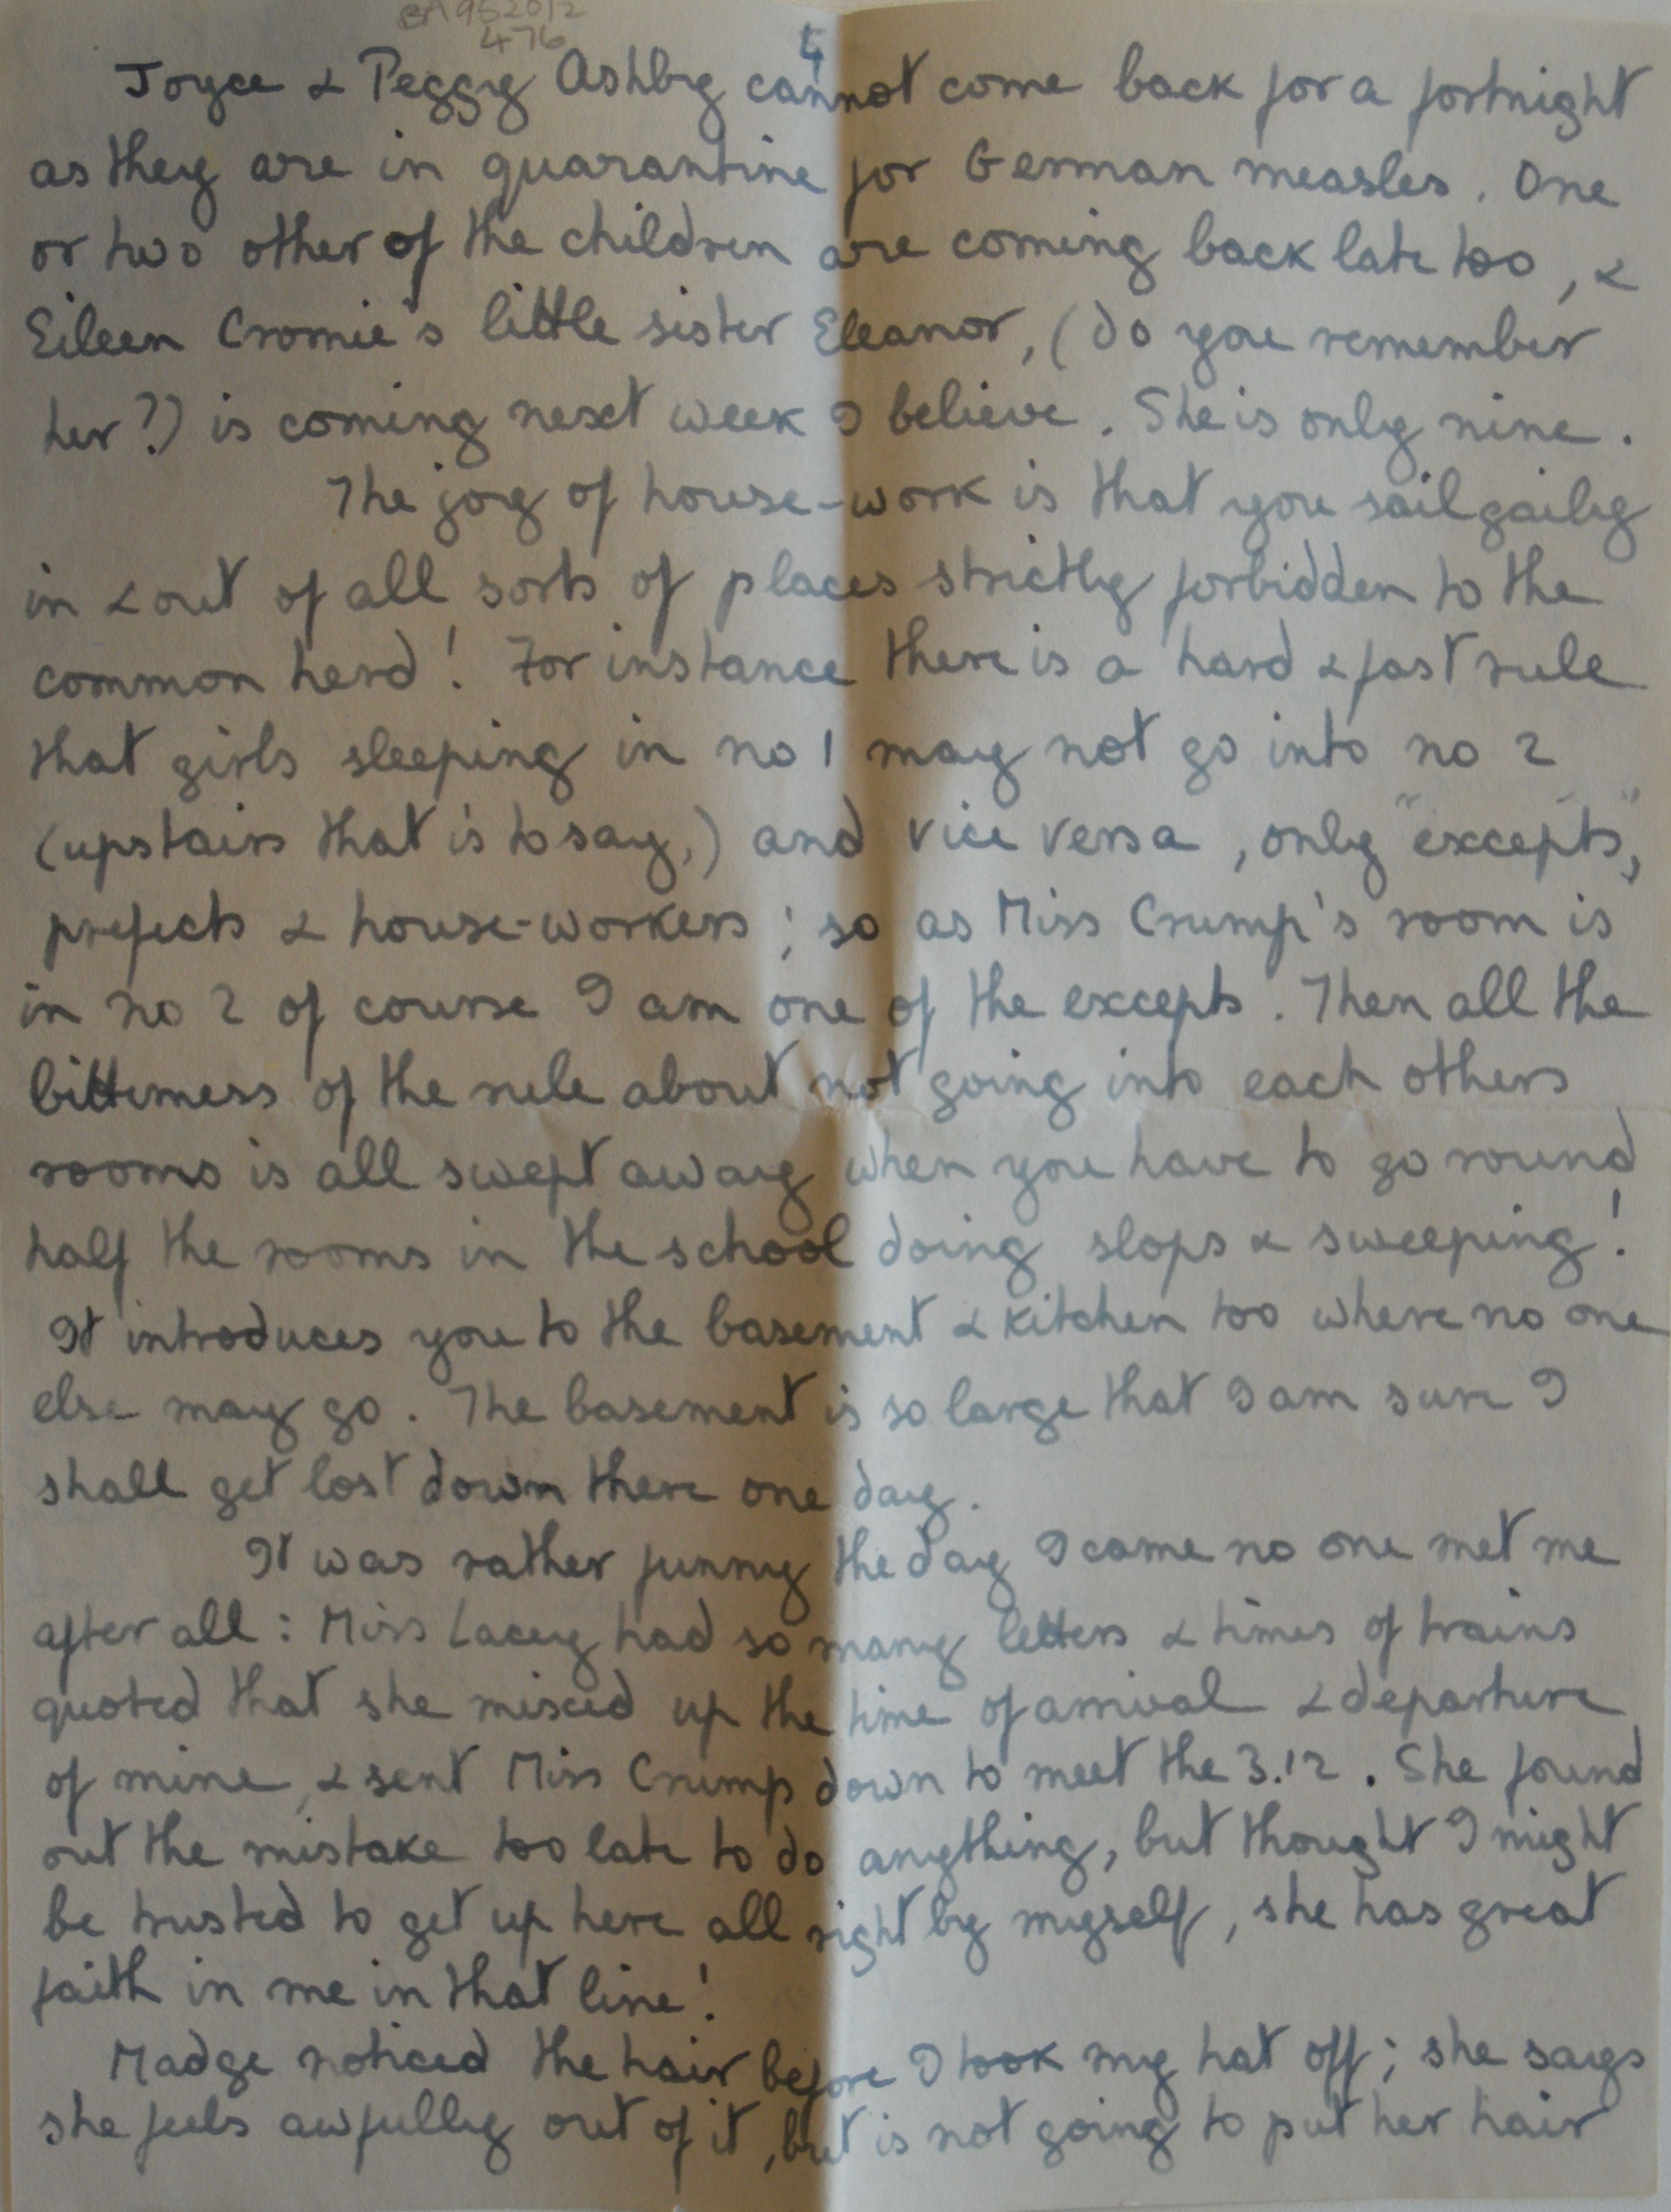 BA952012
476
4
Joyce & Peggy Ashby cannot come back for a fortnight
as they are in quarantine for German measles. One
or two other of the children are coming back late too, &
Eileen Cromie's little sister Eleanor, (do you remember
her?) is coming next week I believe. She is only nine.
The joy of house-work is that you sail gaily
in & out of all sorts of places strictly forbidden to the
common herd! For instance there is a hard & fast rule
that girls sleeping in no 1 may not go into no 2
(upstairs that is to say,) and vice versa, only "excepts",
prefects & house-workers; so as Miss Crump's room is
in no 2 of course I am one of the excepts. Then all the
bitterness of the rule about not going into each others
rooms is all swept away when you have to go round
half the rooms in the school doing slops & sweeping!
It introduces you to the basement & kitchen too where no one
else may go. The basement is so large that I am sure I
shall get lost down there one day.
It was rather funny the day I came no one met me
after all: Miss Lacey had so many letters & times of trains
quoted that she mixed up the time of arrival & departure
of mine, & sent Miss Crump down to meet the 3.12. She found
out the mistake too late to do anything, but thought I might
be trusted to get up here all right by myself, she has great
faith in me in that line!
Madge noticed the hair before I took my hat off; she says
she feels awfully out of it, but is not going to put her hair